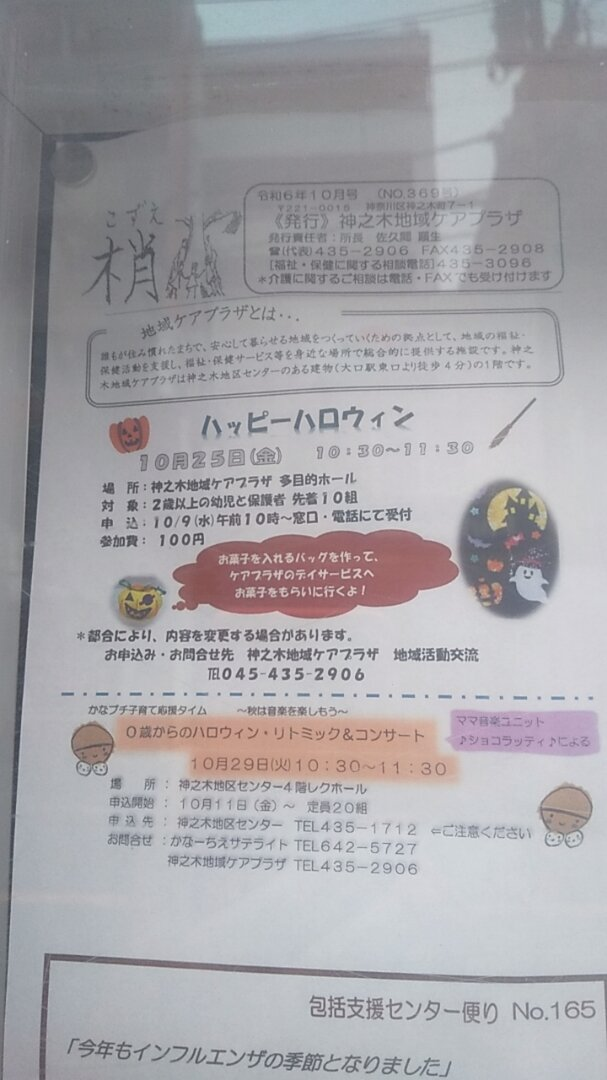 こずえ
梢
令和6年10月号 (NO.369号)
〒221-0016 神奈川区神之木町7-1
《発行》神之木地域ケアプラザ
発行責任者:所長 佐久間
☎(代表)435-2906 FAX435-2908
[福祉・保健に関する相談電話]435-3096
*介護に関するご相談は電話・FAXでも受け付けます
地域ケアプラザとは・・・
誰もが住み慣れたまちで、安心して暮らせる地域をつくっていくための拠点として、地域の福祉・
保健活動を支援し、福祉・保健サービス等を身近な場所で総合的に提供する施設です。神之
木地域ケアプラザは神之木地区センターのある建物(大口駅東口より徒歩4分)の1階です。
ハッピーハロウィン
10月25日(金) 10:30~11:30
場 所:神之木地域ケアプラザ 多目的ホール
対 象:2歳以上の幼児と保護者 先着10組
申 込:10/9(水)午前10時~窓口・電話にて受付
参加費: 100円
お菓子を入れるバッグを作って、
ケアプラザのデイサービスへ
お菓子をもらいに行くよ!
*都合により、内容を変更する場合があります。
お申込み・お問合せ先 神之木地域ケアプラザ 地域活動交流
℡045-435-2906
かなプチ子育て応援タイム ~秋は音楽を楽しもう~
0歳からのハロウィン・リトミック&コンサート
ママ音楽ユニット
♪ショコラッティ♪による
10月29日(火)10:30~11:30
場 所 : 神之木地区センター4階レクホール
申込開始 : 10月11日(金)~ 定員20組
申 込 先 : 神之木地区センター TEL435-1712 ⇐ご注意ください
お問合せ : かなーちえサテライト TEL642-5727
神之木地域ケアプラザ TEL435-2906
包括支援センター便り No.165
「今年もインフルエンザの季節となりました」